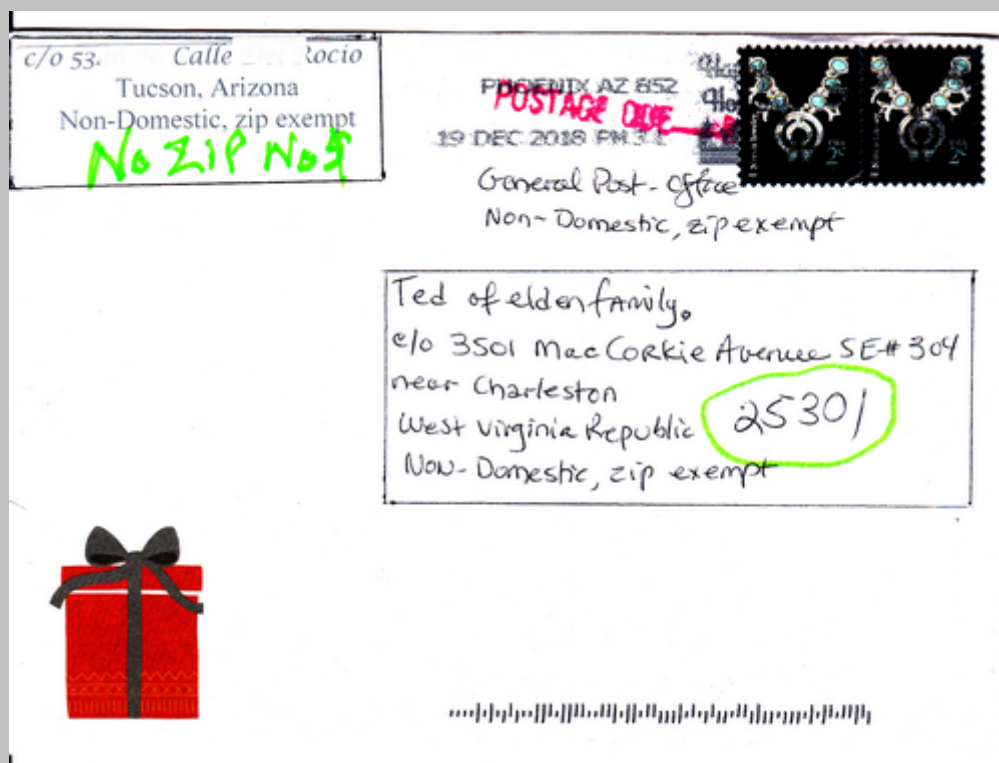 c/o 53. Calle Rocio
Tucson, Arizona
Non-Domestic, zip exempt
No ZIP No
PHOENIX AZ 852
POSTAGE DUE
19 DEC 2018 PM 3 L
General Post-office
Non-Domestic, zip exempt
2¢
2¢
Ted of elden family.
c/o 3501 MacCorkie Avenue SE# 304
near Charleston
West virginia Republic 25301
Non-Domestic, zip exempt